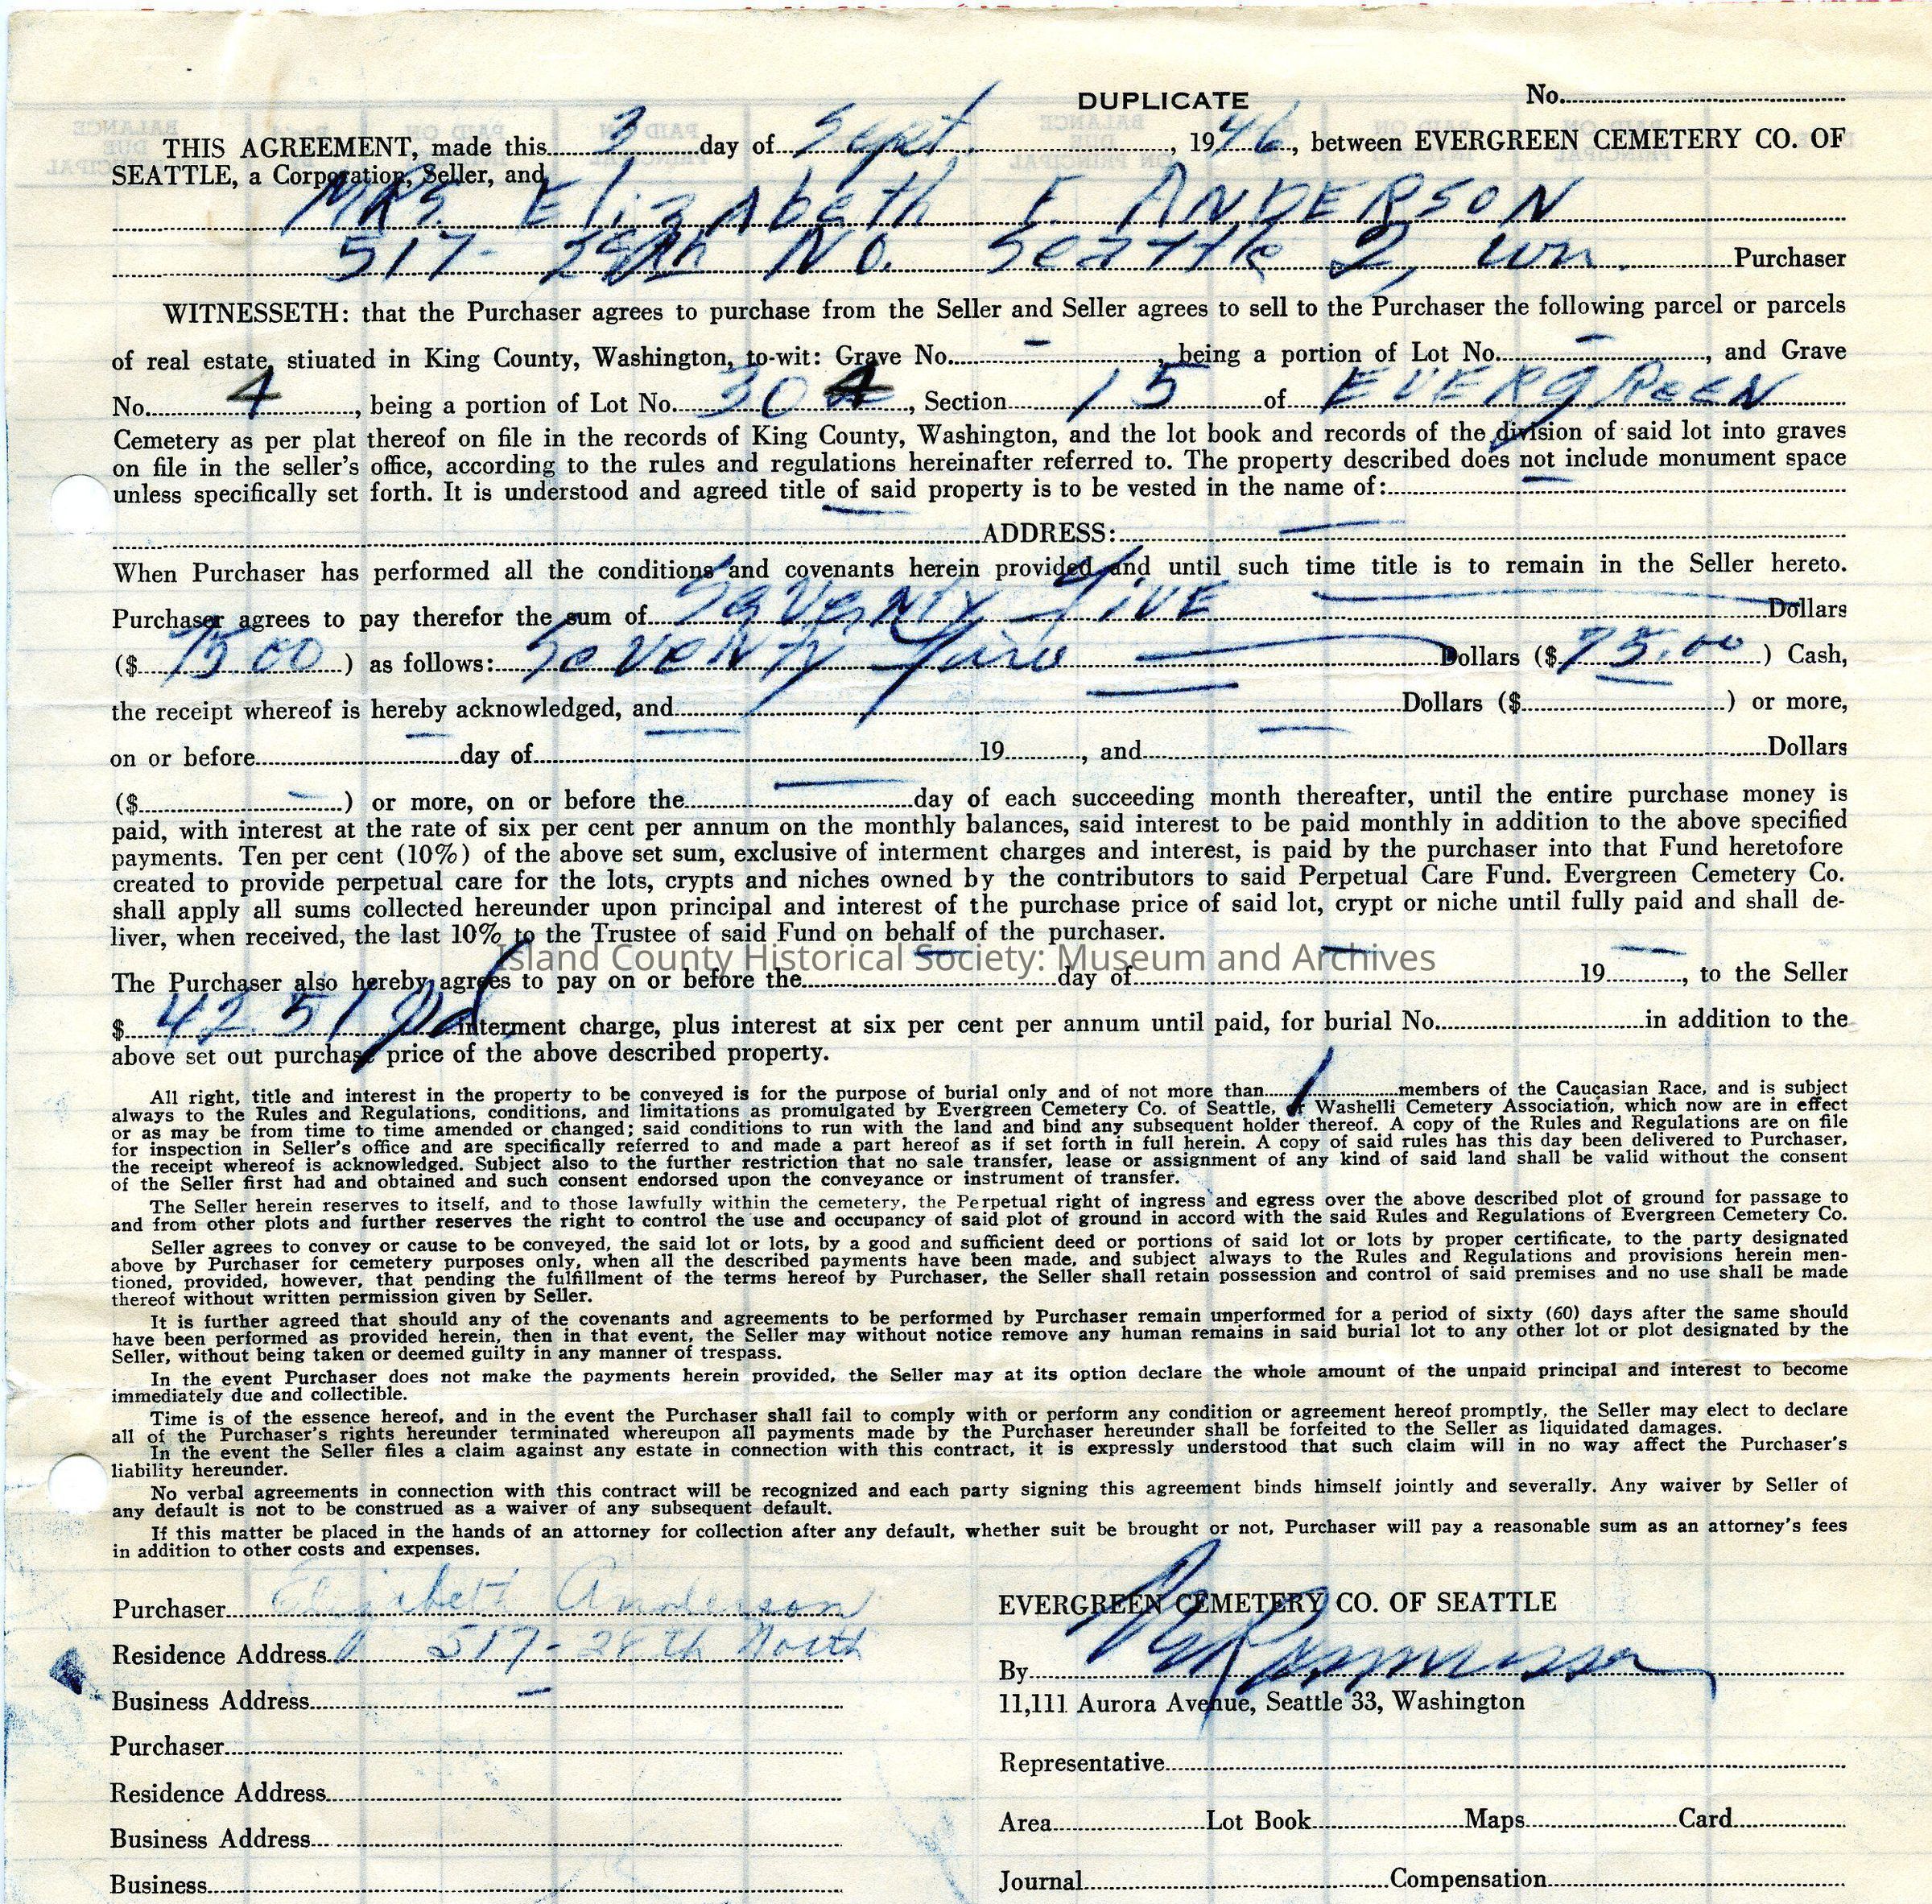 DUPLICATE No.
THIS AGREEMENT, made this 3 day of Sept. , 1946, between EVERGREEN CEMETERY CO. OF
SEATTLE, a Corporation, Seller, and
MRS. ElizAbeth F. ANDERSON
517- 28th No. Seattle 2, Wn. Purchaser
WITNESSETH: that the Purchaser agrees to purchase from the Seller and Seller agrees to sell to the Purchaser the following parcel or parcels
of real estate, stiuated in King County, Washington, to-wit: Grave No. - , being a portion of Lot No. - , and Grave
No. 4 , being a portion of Lot No. 304 , Section 15 of EVERgREEN
Cemetery as per plat thereof on file in the records of King County, Washington, and the lot book and records of the division of said lot into graves
on file in the seller's office, according to the rules and regulations hereinafter referred to. The property described does not include monument space
unless specifically set forth. It is understood and agreed title of said property is to be vested in the name of: -
- ADDRESS: -
When Purchaser has performed all the conditions and covenants herein provided and until such time title is to remain in the Seller hereto.
Purchaser agrees to pay therefor the sum of SeVeNty five Dollars
($ 75.00 ) as follows: SeVeNty five Dollars ($ 75.00 ) Cash,
the receipt whereof is hereby acknowledged, and - Dollars ($ ) or more,
on or before - day of - 19 , and - Dollars
($ - ) or more, on or before the - day of each succeeding month thereafter, until the entire purchase money is
paid, with interest at the rate of six per cent per annum on the monthly balances, said interest to be paid monthly in addition to the above specified
payments. Ten per cent (10%) of the above set sum, exclusive of interment charges and interest, is paid by the purchaser into that Fund heretofore
created to provide perpetual care for the lots, crypts and niches owned by the contributors to said Perpetual Care Fund. Evergreen Cemetery Co.
shall apply all sums collected hereunder upon principal and interest of the purchase price of said lot, crypt or niche until fully paid and shall de-
liver, when received, the last 10% to the Trustee of said Fund on behalf of the purchaser.
Island County Historical Society: Museum and Archives
The Purchaser also hereby agrees to pay on or before the - day of - 19 - , to the Seller
$ 42.51 Pd interment charge, plus interest at six per cent per annum until paid, for burial No. in addition to the
above set out purchase price of the above described property.
All right, title and interest in the property to be conveyed is for the purpose of burial only and of not more than 1 members of the Caucasian Race, and is subject
always to the Rules and Regulations, conditions, and limitations as promulgated by Evergreen Cemetery Co. of Seattle, or Washelli Cemetery Association, which now are in effect
or as may be from time to time amended or changed; said conditions to run with the land and bind any subsequent holder thereof. A copy of the Rules and Regulations are on file
for inspection in Seller's office and are specifically referred to and made a part hereof as if set forth in full herein. A copy of said rules has this day been delivered to Purchaser,
the receipt whereof is acknowledged. Subject also to the further restriction that no sale, transfer, lease or assignment of any kind of said land shall be valid without the consent
of the Seller first had and obtained and such consent endorsed upon the conveyance or instrument of transfer.
The Seller herein reserves to itself, and to those lawfully within the cemetery, the Perpetual right of ingress and egress over the above described plot of ground for passage to
and from other plots and further reserves the right to control the use and occupancy of said plot of ground in accord with the said Rules and Regulations of Evergreen Cemetery Co.
Seller agrees to convey or cause to be conveyed, the said lot or lots, by a good and sufficient deed or portions of said lot or lots by proper certificate, to the party designated
above by Purchaser for cemetery purposes only, when all the described payments have been made, and subject always to the Rules and Regulations and provisions herein men-
tioned, provided, however, that pending the fulfillment of the terms hereof by Purchaser, the Seller shall retain possession and control of said premises and no use shall be made
thereof without written permission given by Seller.
It is further agreed that should any of the covenants and agreements to be performed by Purchaser remain unperformed for a period of sixty (60) days after the same should
have been performed as provided herein, then in that event, the Seller may without notice remove any human remains in said burial lot to any other lot or plot designated by the
Seller, without being taken or deemed guilty in any manner of trespass.
In the event Purchaser does not make the payments herein provided, the Seller may at its option declare the whole amount of the unpaid principal and interest to become
immediately due and collectible.
Time is of the essence hereof, and in the event the Purchaser shall fail to comply with or perform any condition or agreement hereof promptly, the Seller may elect to declare
all of the Purchaser's rights hereunder terminated whereupon all payments made by the Purchaser hereunder shall be forfeited to the Seller as liquidated damages.
In the event the Seller files a claim against any estate in connection with this contract, it is expressly understood that such claim will in no way affect the Purchaser's
liability hereunder.
No verbal agreements in connection with this contract will be recognized and each party signing this agreement binds himself jointly and severally. Any waiver by Seller of
any default is not to be construed as a waiver of any subsequent default.
If this matter be placed in the hands of an attorney for collection after any default, whether suit be brought or not, Purchaser will pay a reasonable sum as an attorney's fees
in addition to other costs and expenses.
Purchaser Elizabeth Anderson
Residence Address 517- 28th North
Business Address -
Purchaser
Residence Address
Business Address
Business
EVERGREEN CEMETERY CO. OF SEATTLE
By Rasmussen
11,111 Aurora Avenue, Seattle 33, Washington
Representative
Area Lot Book Maps Card
Journal Compensation